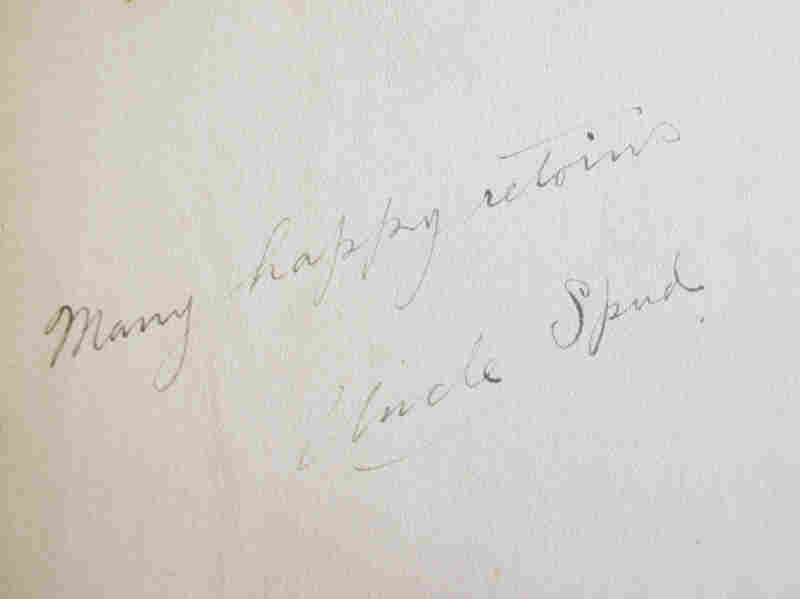 Many happy returns
Uncle Spud.